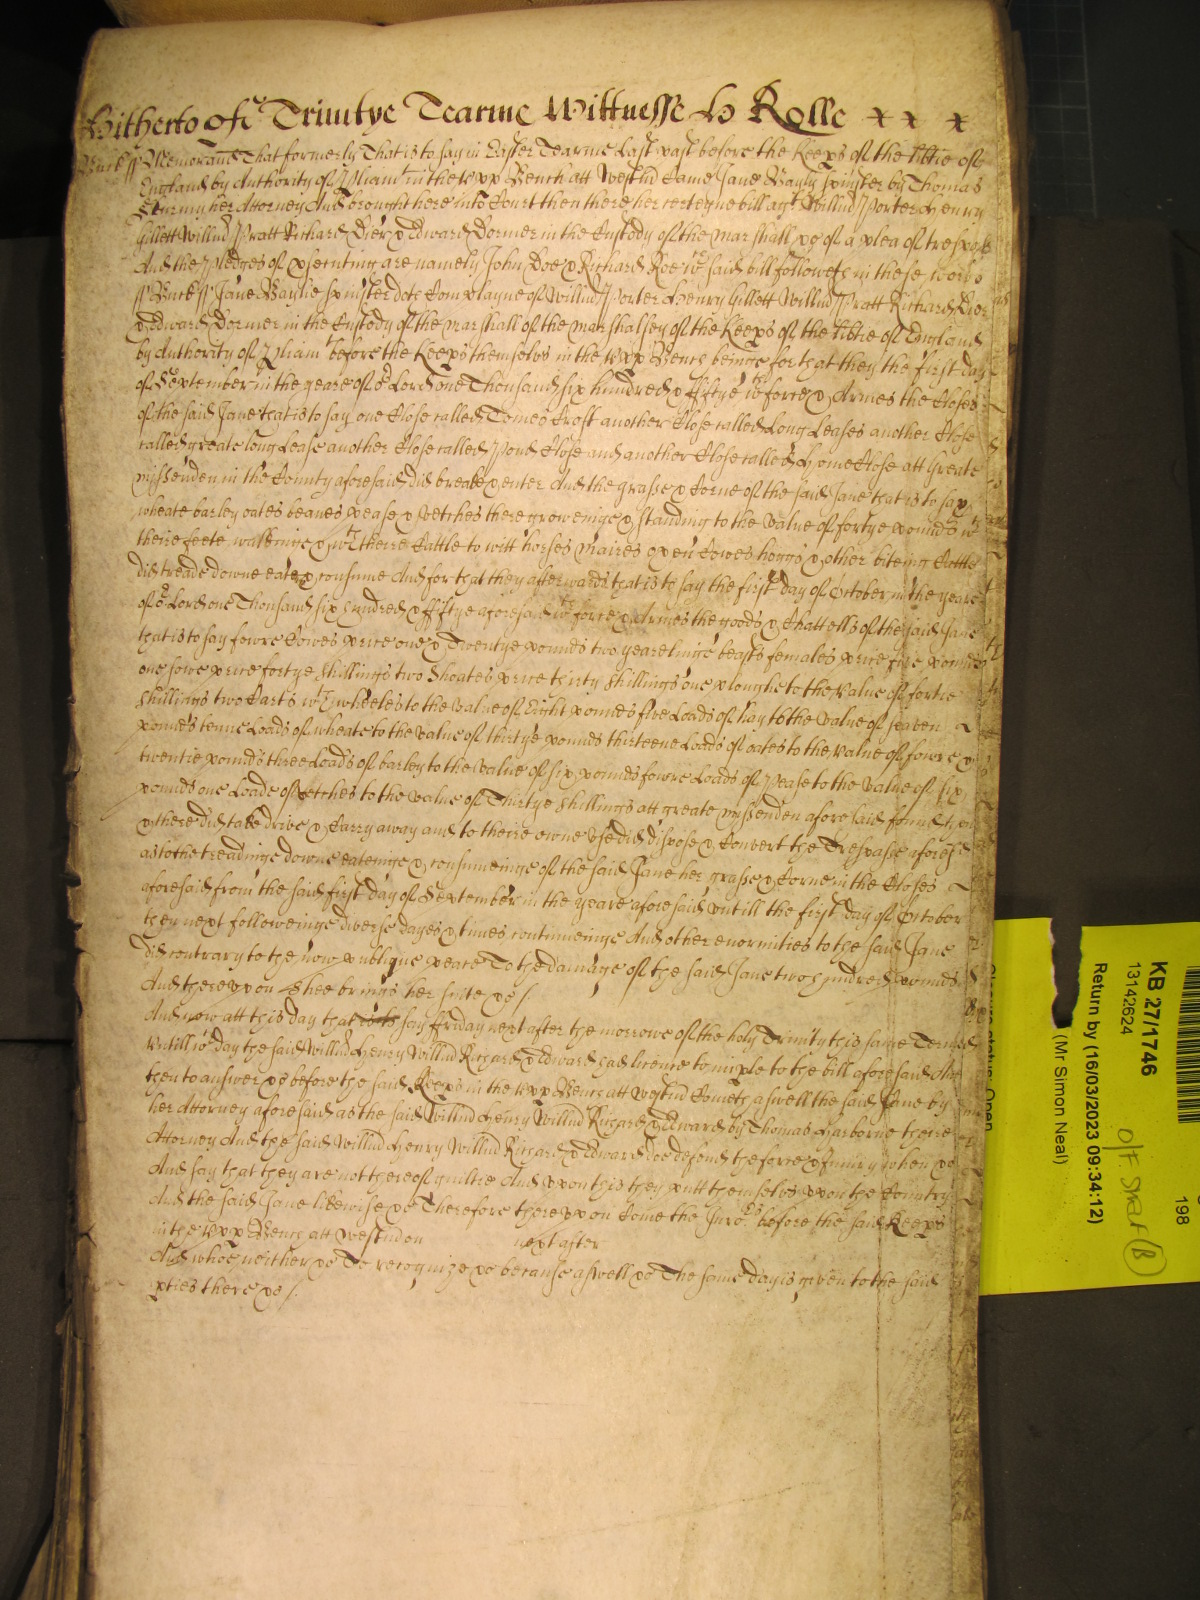 Hitherto of Trinitye Tearme Wittnesse H Rolle x x x
Buck ss Memorand That formerly That is to say in Easter Tearme Last past before the Keeps of the libtie of
England by Authority of Pliam^t in the upp Bench att Westm̃ Came Jane Bayly spinster by Thomas
her Attorney And brought here into Court then there her certeyne bill ag^t Willm̃ Porter Henry
Gillett Willm̃ Pratt Richard Dier & Edward Dormer in the Custody of the marshall &c of a plea of trespas
And the Pledges of psecuting are namely John Doe & Richard Roe w^ch said bill followeth in these words
ss Buck ss Jane Baylie spinster doth Complayne of Willm̃ Porter Henry Gillett Willm̃ Pratt Richard Dier
& Edward Dormer in the Custody of the marshall of the marshalsey of the Keeps of the libtie of England
by Authority of Pliam^t before the Keeps themselves in the upp Bench beinge for that they the first day
of September in the yeare of o^r Lord one Thousand six hundred & fiftye w^th force & Armes the Closes
of the said Jane that is to say one Close called Tomes Croft another Close called Long Leases another Close
called greate long Lease another Close called Pond Close and another Close called Home Close att Greate
missenden in the County aforesaid did breake & enter And the grasse & Corne of the said Jane that is to say
wheate barley oates beanes pease & vetches there groweinge & standing to the value of fortye pounds w^th
theire feete walkinge & w^th theire Cattle to witt horses maires oxen Cowes hoggs & other biteing Cattle
did treade downe eate & consume And for that they afterwards that is to say the first day of October in the yeare
of o^r Lord one Thousand six hundred & fiftye aforesaid w^th force & Armes the goods & Chattells of the said Jane
that is to say fowre Cowes price one & Twentye pounds two yearelinge beasts females price five pounds
one sowe price fortye shillings two Shoates price thirty shillings one ploughe to the value of fortie
shillings two Carts w^th wheeles to the value of Eight pounds five Loads of hay to the value of seaven
pounds tenne Loads of wheate to the value of thirtye pounds thirteene Loads of oates to the value of fowre &
twentie pounds three Loads of barley to the value of six pounds fowre Loads of Pease to the value of six
pounds one Loade of vetches to the value of Thirtye shillings att greate missenden aforesaid found then
& there did take drive & Carry away and to theire owne use did dispose & Convert the Trespasse aforesd
as to the treadinge downe eateinge & consumeinge of the said Jane her grasse & Corne in the Closes
aforesaid from the said first day of September in the yeare aforesaid untill the first day of October
then next followeinge diverse dayes & times continueinge And other enormities to the said Jane
did contrary to the now publique peace To the damage of the said Jane two hundred pounds
And thereupon shee brings her suite &c /
And now att this day that is to say ffriday next after the morrowe of the holy Trinity this same Terme
Untill w^ch day the said Willm̃ Henry Willm̃ Richard & Edward had licence to imple to the bill aforesaid And
then to answer &c before the said Keeps in the upp Bench att Westm̃ Cometh aswell the said Jane by
her Attorney aforesaid as the said Willm̃ Henry Willm̃ Richard & Edward by Thomas Harborne theire
Attorney And the said Willm̃ Henry Willm̃ Richard & Edward doe defend the force & Iniury when &c
And say that they are not thereof guiltie And upon this they putt themselves upon the Country
And the said Jane likewise &c Therefore thereupon Come the Juro^rs before the said Keeps
in the upp Bench att Westm̃ on next after
And whoe neither &c To recognize &c because aswell &c The same day is given to the said
pties there &c /
KB 27/1746
13142624
Return by (16/03/2023 09:34:12)
(Mr Simon Neal)
Open
198